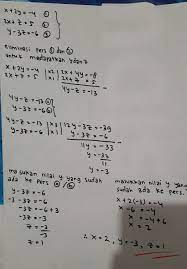 x + 2y = -4 ①
2x + z = 5 ②
y - 3z = -6 ③
Eliminasi pers ① dan ②
untuk mendapatkan y dan z
x + 2y = -4 |x2| 2x + 4y = -8
2x + z = 5 |x1| 2x + z = 5
4y - z = -13
4y - z = -13
y - 3z = -6
4y - z = -13 |x3| 12y - 3z = -39
y - 3z = -6 |x1| y - 3z = -6
11y = -33
y = -33
11
y = -3
masukan nilai y yang sudah
ada ke pers
y - 3z = -6
y - 3z = -6
-3z = -6 + 3
-3z = -3
z = -3
-3
z = 1
masukan nilai y yang
sudah ada ke pers
x + 2(-3) = -4
x - 6 = -4
x = -4 + 6
x = 2
∴ x = 2, y = -3, z = 1